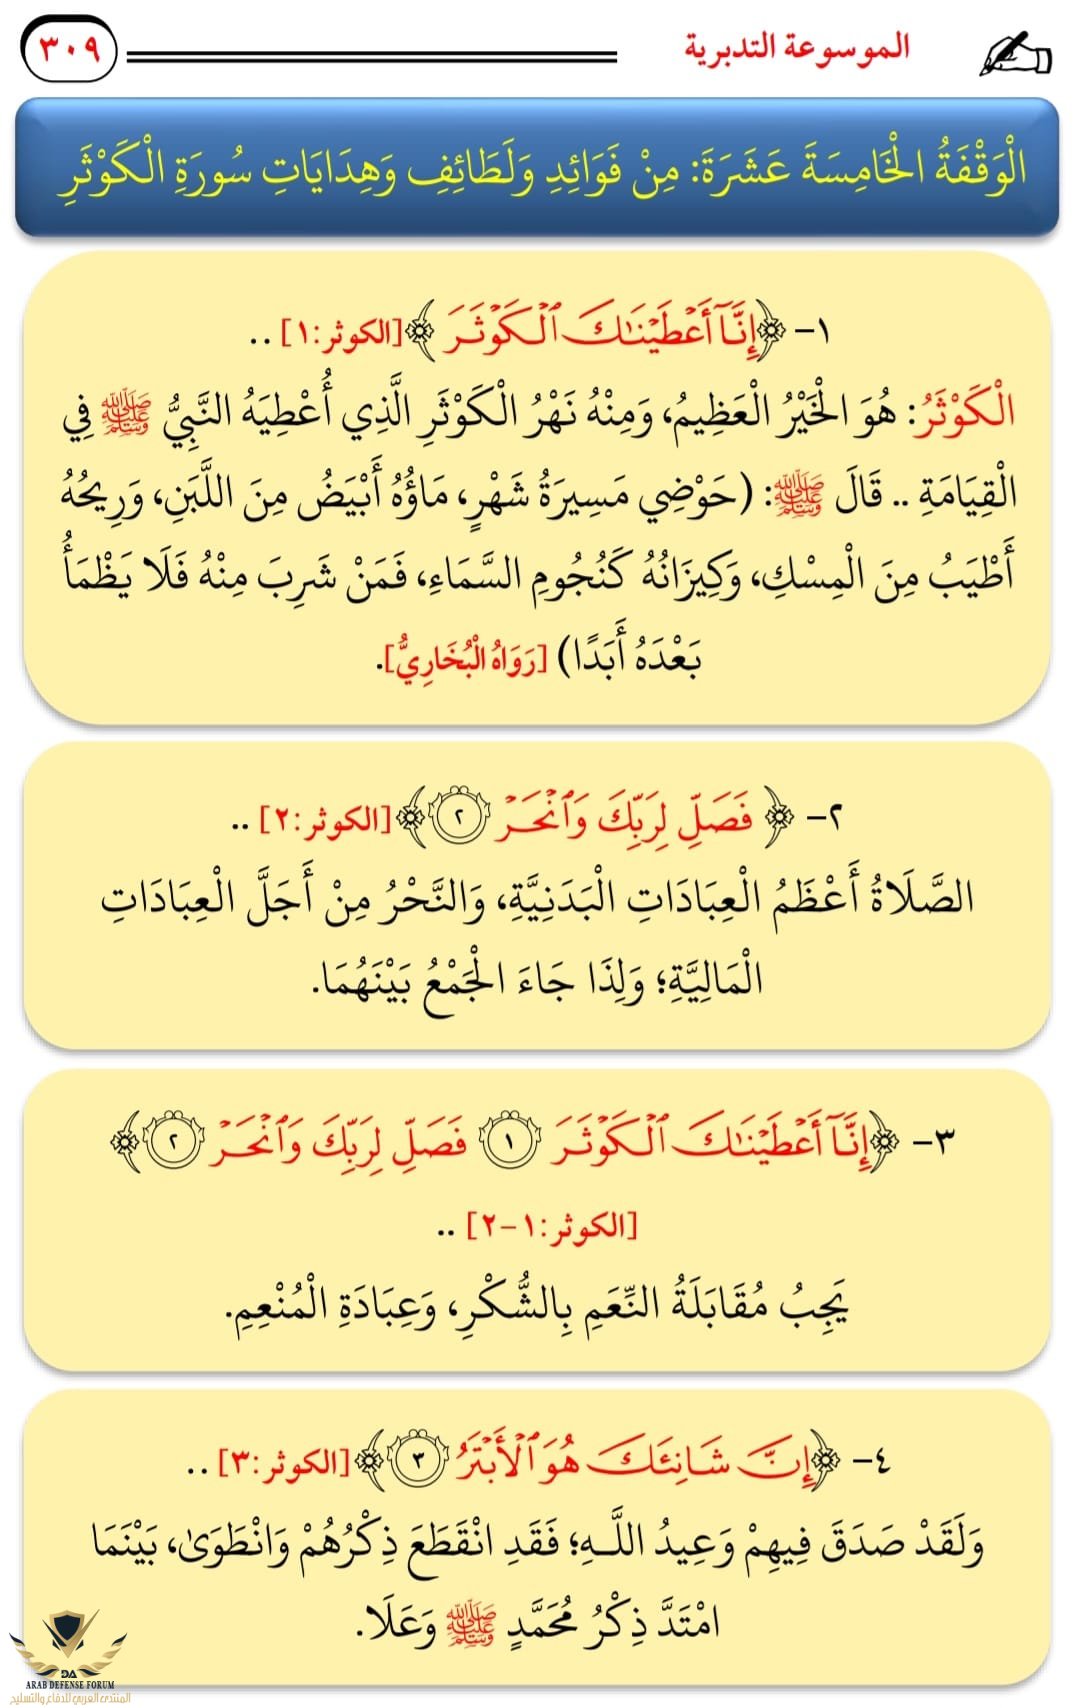 الموسوعة التدبرية
٣٠٩
الْوَقْفَةُ الْخَامِسَةَ عَشَرَةَ: مِنْ فَوَائِدِ وَلَطَائِفِ وَهِدَايَاتِ سُورَةِ الْكَوْثَرِ
١- ﴿إِنَّآ أَعْطَيْنَٰكَ ٱلْكَوْثَرَ﴾ [الكوثر:١] ..
الْكَوْثَرُ: هُوَ الْخَيْرُ الْعَظِيمُ، وَمِنْهُ نَهْرُ الْكَوْثَرِ الَّذِي أُعْطِيَهُ النَّبِيُّ ﷺ فِي
الْقِيَامَةِ .. قَالَ ﷺ: (حَوْضِي مَسِيرَةُ شَهْرٍ، مَاؤُهُ أَبْيَضُ مِنَ اللَّبَنِ، وَرِيحُهُ
أَطْيَبُ مِنَ الْمِسْكِ، وَكِيزَانُهُ كَنُجُومِ السَّمَاءِ، فَمَنْ شَرِبَ مِنْهُ فَلَا يَظْمَأُ
بَعْدَهُ أَبَدًا) [رَوَاهُ الْبُخَارِيُّ].
٢- ﴿فَصَلِّ لِرَبِّكَ وَٱنْحَرْ ٢﴾ [الكوثر:٢] ..
الصَّلَاةُ أَعْظَمُ الْعِبَادَاتِ الْبَدَنِيَّةِ، وَالنَّحْرُ مِنْ أَجَلَّ الْعِبَادَاتِ
الْمَالِيَّةِ؛ وَلِذَا جَاءَ الْجَمْعُ بَيْنَهُمَا.
٣- ﴿إِنَّآ أَعْطَيْنَٰكَ ٱلْكَوْثَرَ ١ فَصَلِّ لِرَبِّكَ وَٱنْحَرْ ٢﴾
[الكوثر:١-٢] ..
يَجِبُ مُقَابَلَةُ النِّعَمِ بِالشُّكْرِ، وَعِبَادَةِ الْمُنْعِمِ.
٤- ﴿إِنَّ شَانِئَكَ هُوَ ٱلْأَبْتَرُ ٣﴾ [الكوثر:٣] ..
وَلَقَدْ صَدَقَ فِيهِمْ وَعِيدُ اللَّـهِ؛ فَقَدِ انْقَطَعَ ذِكْرُهُمْ وَانْطَوَىٰ، بَيْنَمَا
امْتَدَّ ذِكْرُ مُحَمَّدٍ ﷺ وَعَلَا.
DA
ARAB DEFENSE FORUM
المنتدى العربي للدفاع والتسليح